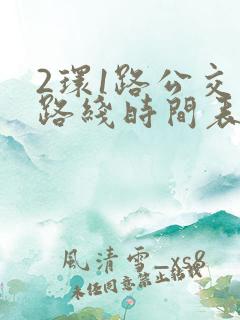 2環1路公交
路綫時間表
風清雪_xs8
未經同意禁止轉載